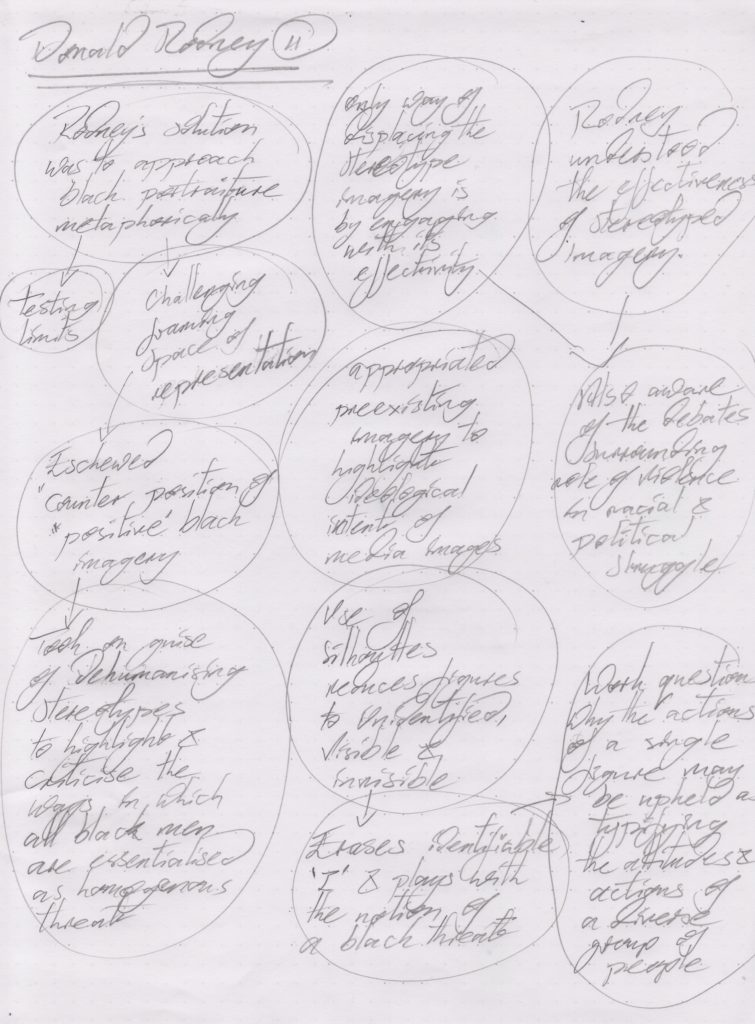 Donald Rodney 11
Rodney's solution
was to approach
black portraiture
metaphorically
testing
limits
challenging
framing
space of
representation
Eschewed
"counter position of
"positive' black
imagery
Took on guise
of dehumanising
stereotypes
to highlight &
criticise the
ways in which
all black men
are essentialised
as homogenous
threat
only way of
displacing the
stereotype
imagery is
by engaging
with its
effectivity
appropriated
preexisting
imagery to
highlight
ideological
intent of
media images
Use of
silhouettes
reduces figures
to unidentified,
visible &
invisible
Erases identifiable
'I' & plays with
the notion of
a black threat
Rodney
understood
the effectiveness
of stereotyped
imagery.
Also aware
of the debates
surrounding
role of violence
in racial &
political
struggle
Work question
why the actions
of a single
figure may
be upheld as
typifying
the attitudes &
actions of
a diverse
group of
people